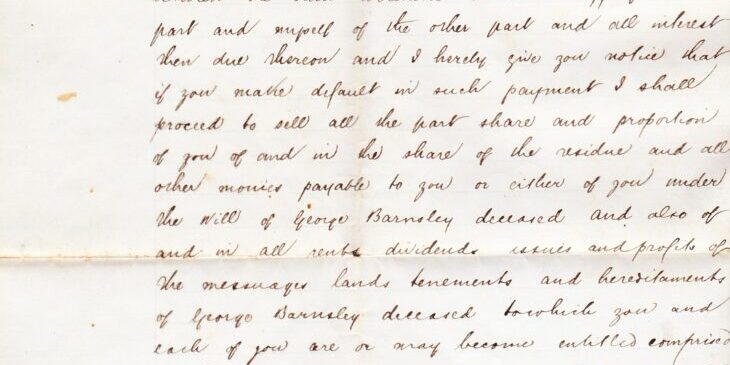 part and myself of the other part and all interest
then due thereon and I hereby give you notice that
if you make default in such payment I shall
proceed to sell all the part share and proportion
of you of and in the share of the residue and all
other monies payable to you or either of you under
the Will of George Barnsley deceased and also of
and in all rents dividends issues and profits of
the messuages lands tenements and hereditaments
of George Barnsley deceased to which you and
each of you are or may become entitled comprised